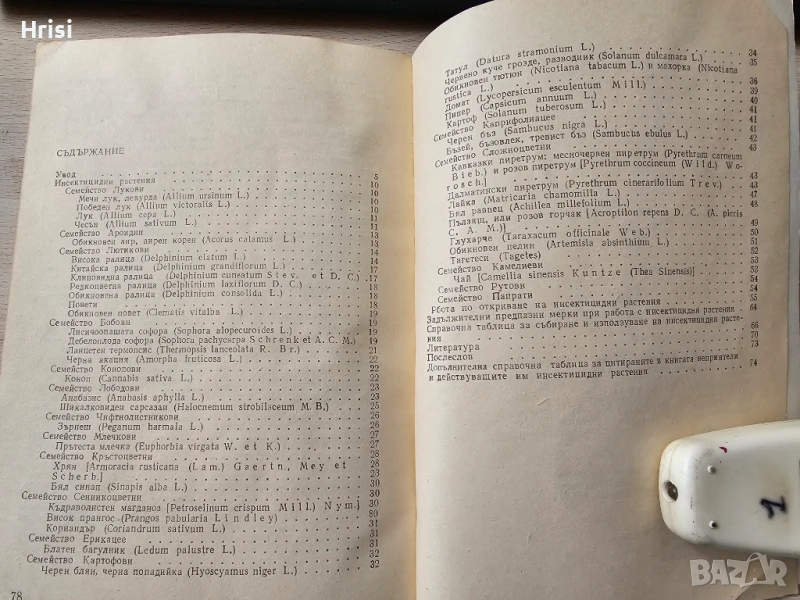 Hrisi
СЪДЪРЖАНИЕ
Увод 5
Инсектицидни растения 10
Семейство Лукови 10
Мечи лук, левурда (Allium ursinum L.) 10
Победен лук (Allium victoralis L.) 10
Лук (Allium cepa L.) 11
Чесън (Allium sativum L.) 11
Семейство Ароидни 13
Обикновен аир, аирен корен (Acorus calamus L.) 13
Семейство Лютикови 14
Висока ралица (Delphinium elatum L.) 14
Китайска ралица (Delphinium grandiflorum L.) 14
Клиновидна ралица (Delphinium cuneatum Stev. et D. C.) 17
Редкоцветна ралица (Delphinium laxiflorum D. C.) 18
Обикновена ралица (Delphinium consolida L.) 18
Повети 18
Обикновен повет (Clematis vitalba L.) 18
Семейство Бобови 19
Лисичоопашата софора (Sophora alopecuroides L.) 19
Дебелоплода софора (Sophora pachycarpa Schrenk et A. C. M.) 19
Ланцетен термопсис (Thermopsis lanceolata R. Br.) 21
Черна акация (Amorpha fruticosa L.) 22
Семейство Конопови 22
Коноп (Cannabis sativa L.) 22
Семейство Лободови 23
Анабазис (Anabasis aphylla L.) 23
Шикалковиден сарсазан (Halocnemum strobilaceum M. B.) 25
Семейство Чифтнолистникови 26
Зърнеш (Peganum harmala L.) 26
Семейство Млечкови 27
Пръчеста млечка (Euphorbia virgata W. et K.) 27
Семейство Кръстоцветни 28
Хрян [Armoracia rusticana (Lam.) Gaertn., Mey et
Scherb.] 28
Бял синап (Sinapis alba L.) 29
Семейство Сенникоцветни 30
Къдраволистен магданоз [Petroselinum crispum Mill.) Nym.] 30
Висок прангос (Prangos pabularia Lindley) 30
Кориандър (Coriandrum sativum L.) 31
Семейство Ерикацее 31
Блатен багулник (Ledum palustre L.) 31
Семейство Картофови 32
Черен блян, черна попадийка (Hyoscyamus niger L.) 32
78
Татул (Datura stramonium L.) 34
Червено куче грозде, разводник (Solanum dulcamara L.) 35
Обикновен тютюн (Nicotiana tabacum L.) и махорка (Nicotiana
rustica L.) 36
Домат (Lycopersicum esculentum Mill.) 39
Пипер (Capsicum annuum L.) 40
Картоф (Solanum tuberosum L.) 41
Семейство Каприфолиацее 41
Черен бъз (Sambucus nigra L.) 41
Бъзей, бъзовлек, тревист бъз (Sambucus ebulus L.) 42
Семейство Сложноцветни 43
Кавказки пиретрум: месночервен пиретрум (Pyrethrum carneum
Bieb.) и розов пиретрум [Pyrethrum coccineum (Willd.) Wo-
rosch.]
Далматински пиретрум (Pyrethrum cinerarifolium Trev.)
Лайка (Matricaria chamomilla L.)
Бял равнец (Achillea millefolium L.)
Пълзищ, или розов горчак (Acroptilon repens D. C. (A. picris
C. A. M.)] 49
Глухарче (Taraxacum officinale Web.) 50
Обикновен пелин (Artemisia absinthium L.) 51
Тагетеси (Tagetes) 52
Семейство Камелиеви 53
Чай [Camellia sinensis Kuntze (Thea Sinensis)] 53
Семейство Рутови 53
Семейство Папрати 54
Рбота по откриване на инсектицидни растения 55
Задължителни предпазни мерки при работа с инсектицидни растения 64
Справочна таблица за събиране и използуване на инсектицидни расте-
ния 66
Литература 70
Послеслов 73
Допълнителна справочна таблица за цитираните в книгата неприятели
и действуващите им инсектицидни растения 74
1
BAZAR